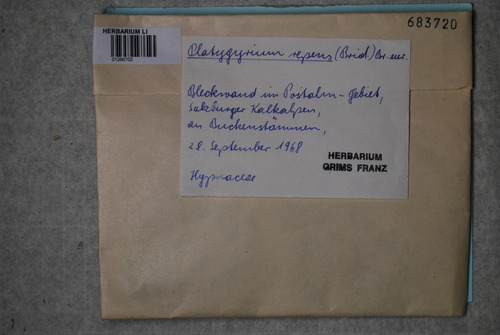 HERBARIUM LI
683720
Platygyrium repens (Brid.) Br. eur.
Bleckwand im Postalm-gebiet,
Salzburger Kalkalpen,
an Buchenstämmen,
28. September 1968
HERBARIUM
GRIMS FRANZ
Hypnaceae